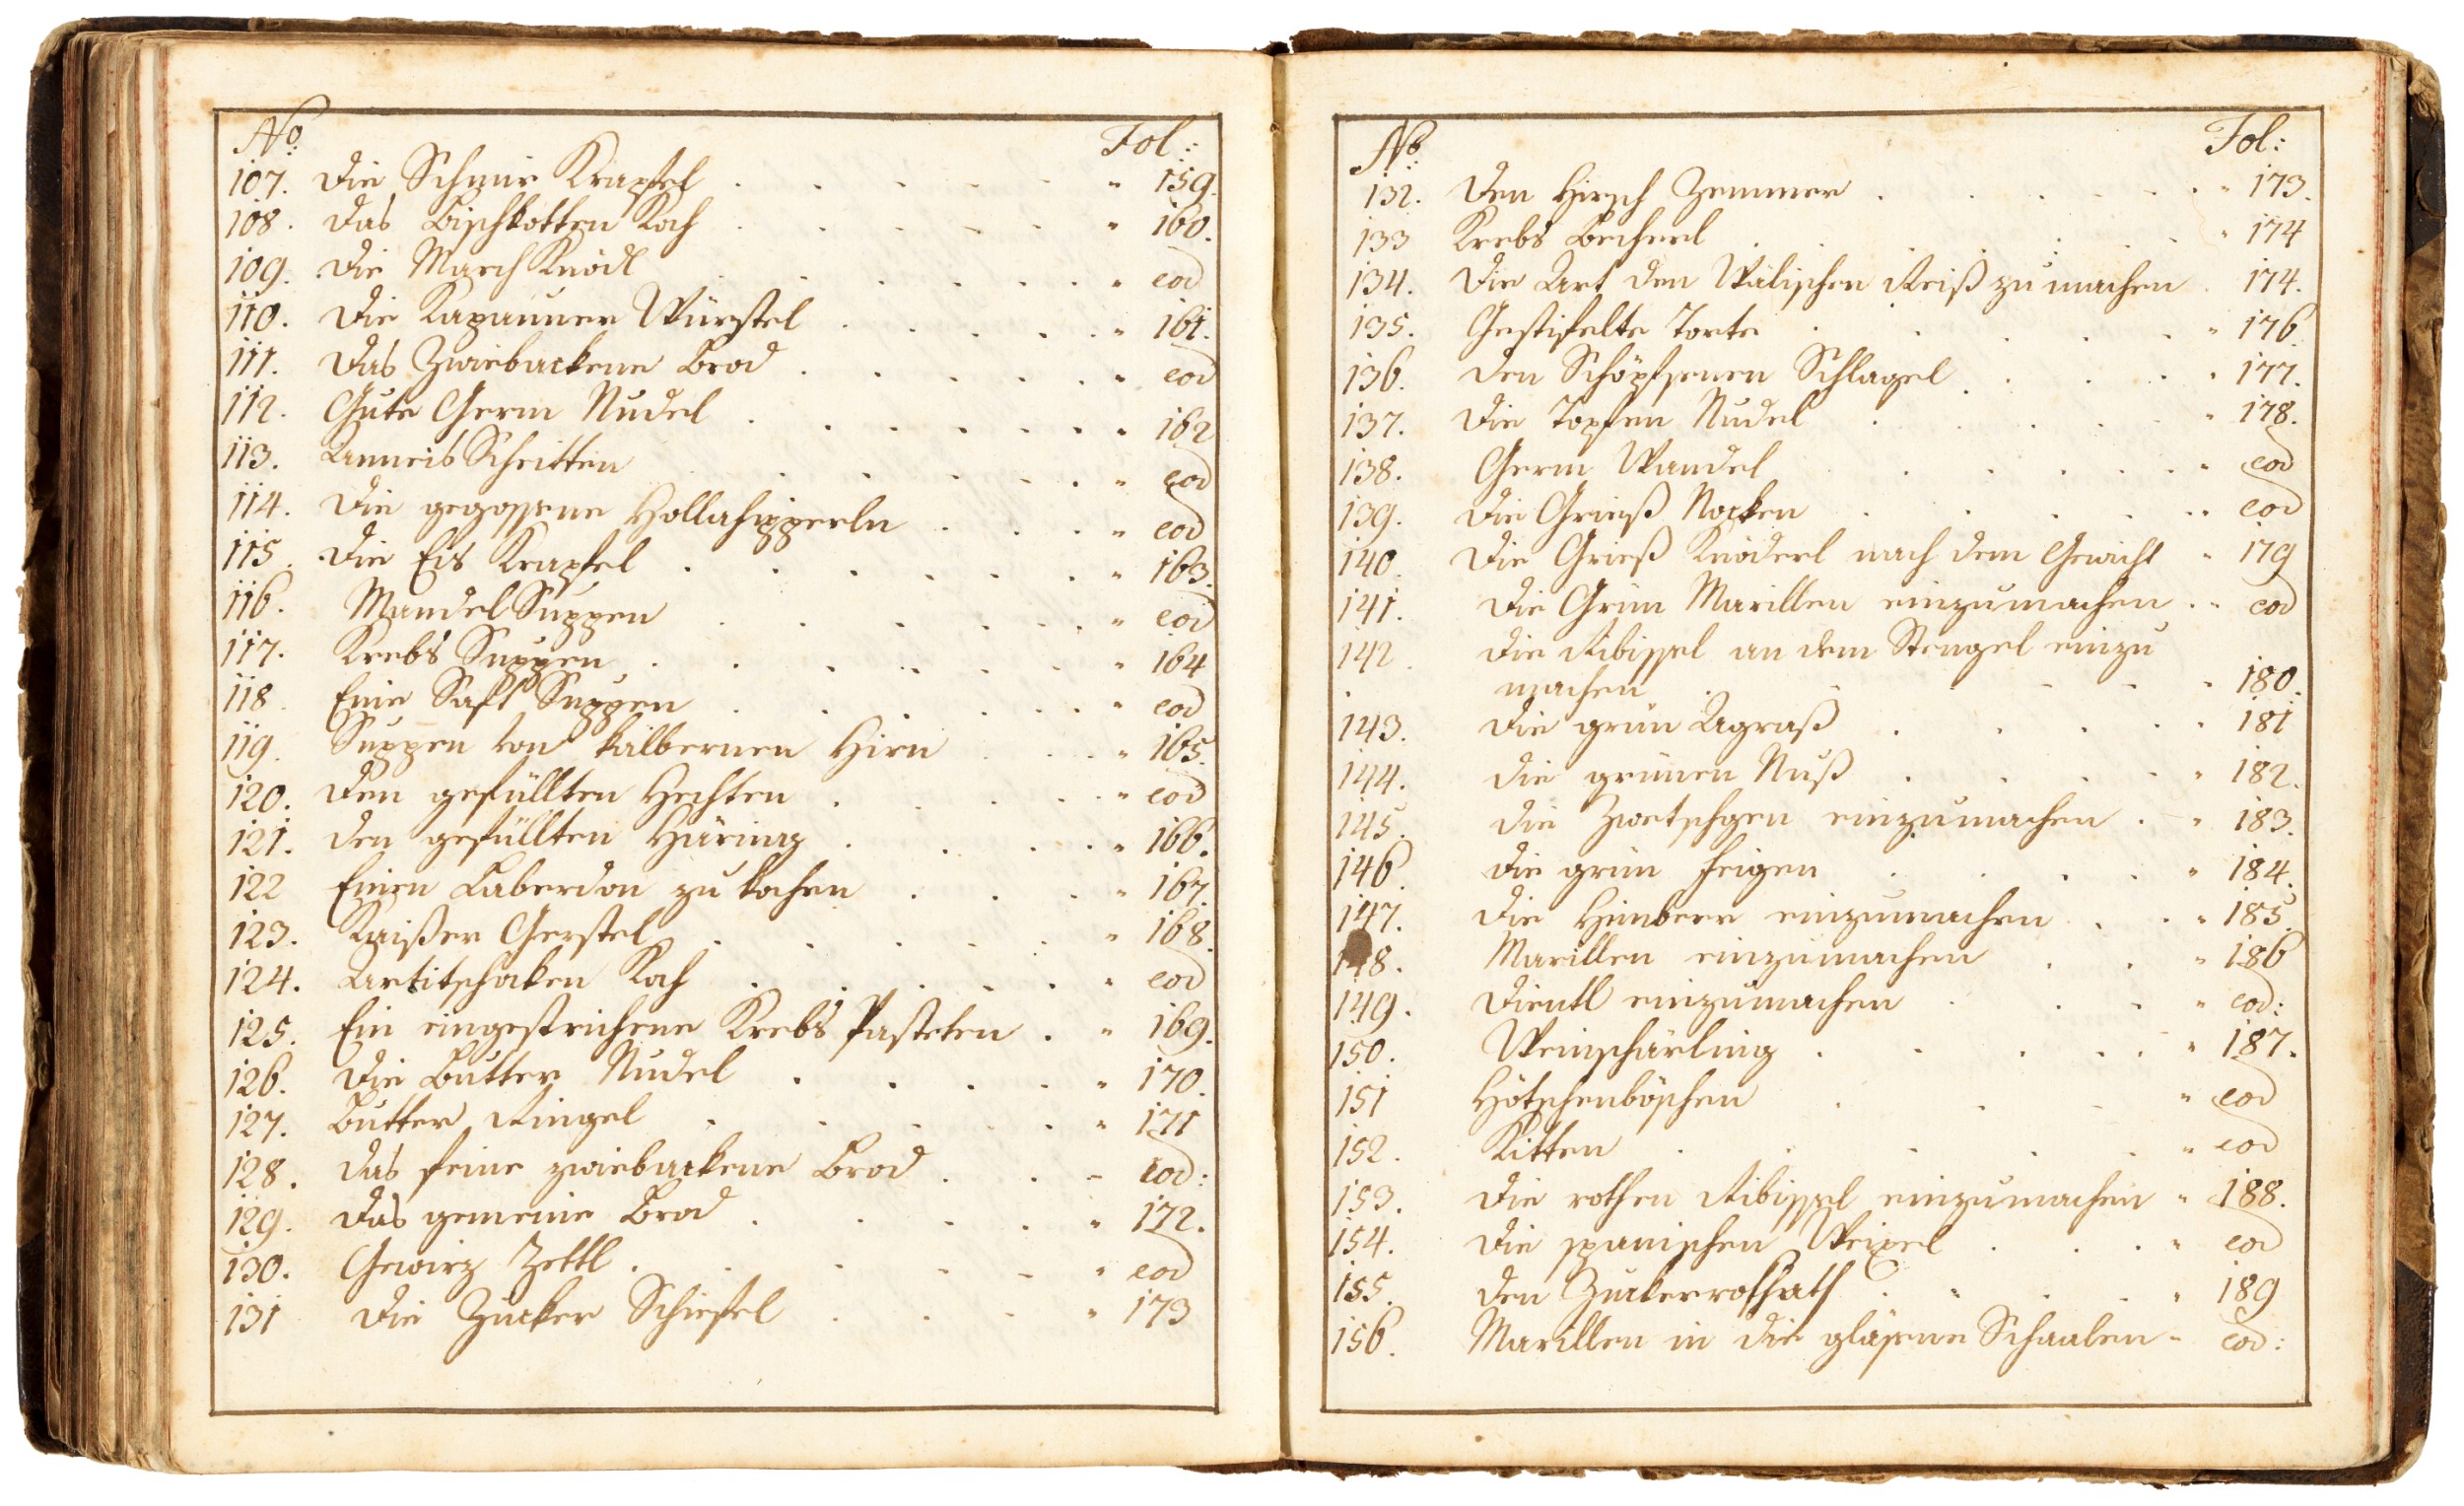 No Fol:
107. Die Schnür Krapfel . . . . . " 159.
108. Das Bischkotten Koch . . . . . " 160.
109. Die March Knödl . . . . . " eod
110. Die Kapauner Würstel . . . . . " 161.
111. Das Zwiebackene Brod . . . . . " eod
112. Gute Germ Nudel . . . . . " 162
113. Anneis Schritten . . . . . " eod
114. Die gegossene Hollahipperln . . . " eod
115. Die Eis Krapfel . . . . . " 163.
116. Mandel Suppen . . . . . " eod
117. Krebs Suppen . . . . . " 164
118. Eine Saft Suppen . . . . . " eod
119. Suppen von kälbernen Hirn . . . " 165.
120. Den gefüllten Hechten . . . . " eod
121. den gefüllten Häring . . . . " 166.
122 Einen Laberdon zu kochen . . . " 167.
123. Kaißer Gerstel . . . . . " 168.
124. Artitschoken Koch . . . . . " eod
125. Ein eingestrichene Krebs Pasteten . " 169.
126. Die Butter Nudel . . . . " 170.
127. Butter Ringel . . . . . " 171
128. das feine zwiebackene Brod . . - eod:
129. Das gemeine Brod . . . . " 172.
130. Gewirz Zeltl . . . . . " eod
131 Die Zucker Schiefel . . . " 173
No Fol:
132. Den Hirsch Zemmer . . . . . " 173.
133 Krebs Becherl . . . . . " 174
134. Die Art den Wälischen Reiß zu machen . 174.
135. Gestifelte Torte . . . . . " 176.
136. Den Schöpsenen Schlagel . . . . 177.
137. Die Topfen Nudel . . . . " 178.
138. Germ Wandel . . . . . " eod
139. Die Grieß Nocken . . . . . " eod
140. Die Grieß Knöderl nach dem Gewicht " 179
141. Die Grün Marillen einzumachen . " eod
142. Die Ribissel an dem Stengel einzu
machen . . . . . " 180.
143. Die grün Agraß . . . . . 181
144. die grünen Nuß . . . . " 182.
145. die Zwetschgen einzumachen . . " 183.
146. die grün Feigen . . . . " 184.
147. Die Himbeer einzumachen . . " 185.
148. Marillen einzumachen . . " 186
149. Dientl einzumachen . . . " eod:
150. Weinschärling . . . . . " 187.
151 Hötschenbötschen . . . " eod
152. Kitten . . . . . " eod
153. Die rothen Ribissel einzumachen " 188.
154. Die spanischen Weixel . . . " eod
155. den Zuckerrossath . . . . " 189
156. Marillen in die gläsene Schaalen - eod: